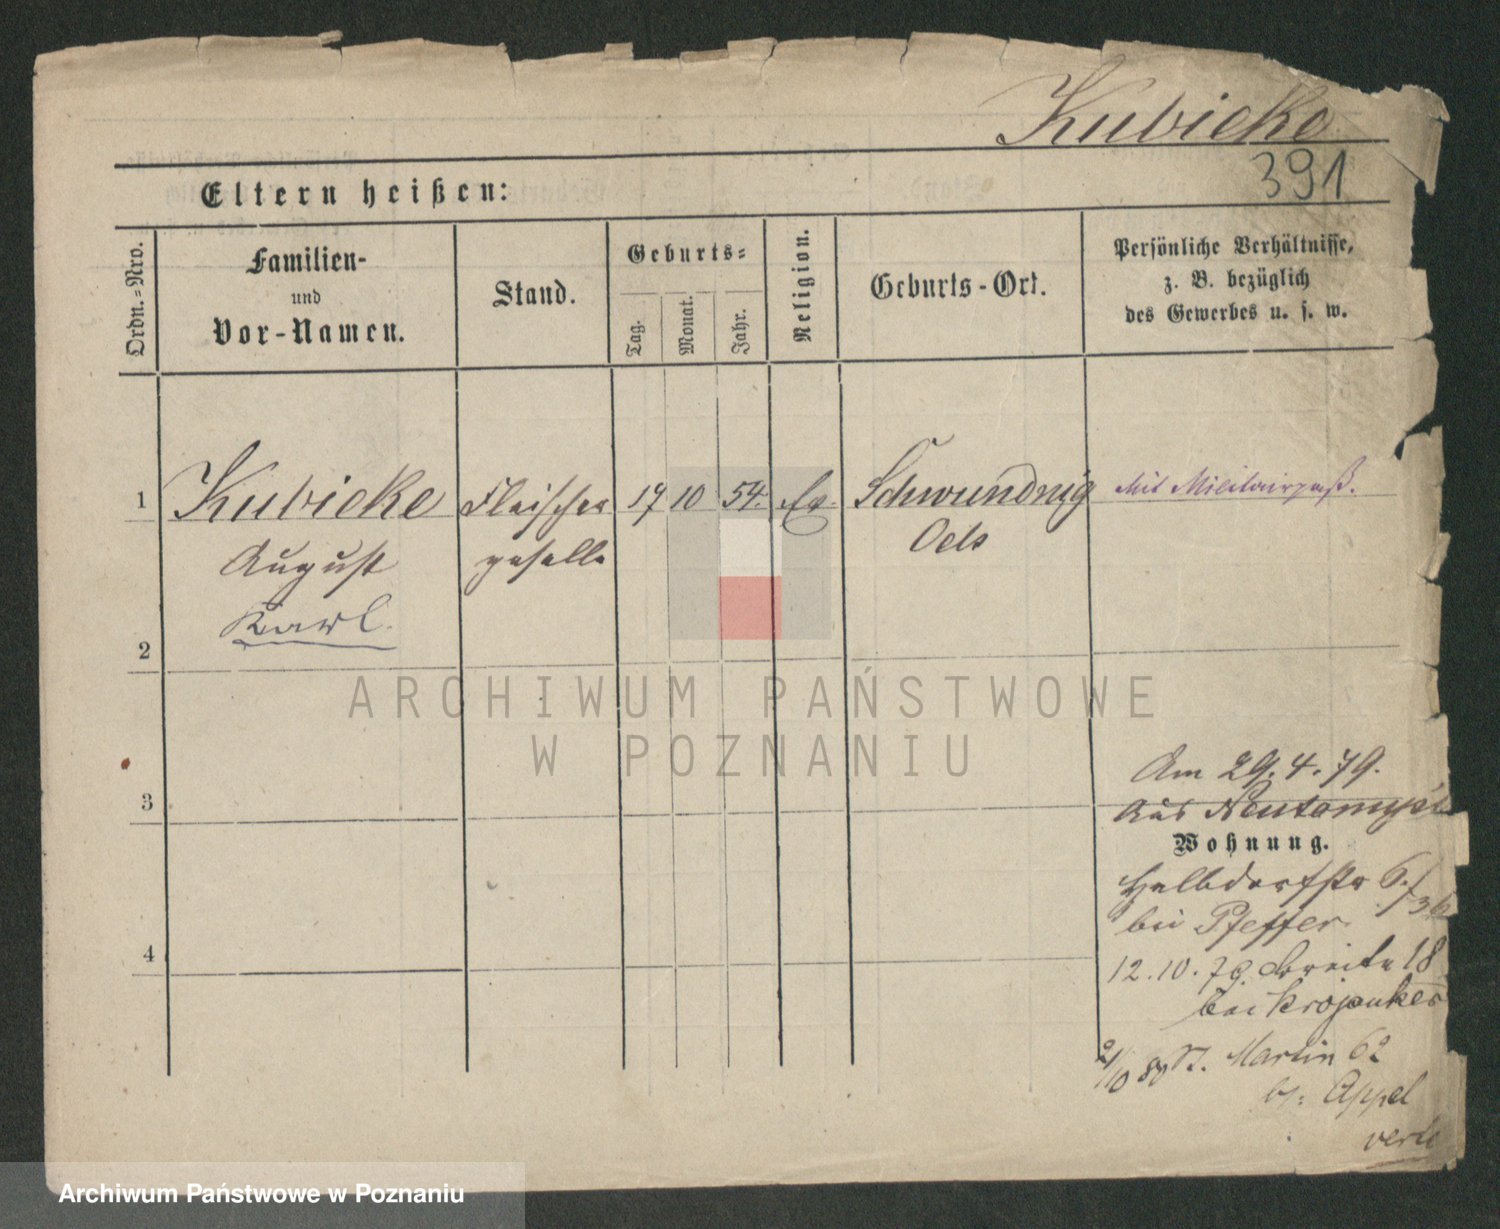 Kubicke
391
Eltern heißen:
Ordn.-Nro.
Familien-
und
Vor-Namen.
Stand.
Geburts-
Tag.
Monat.
Jahr.
Religion.
Geburts-Ort.
Persönliche Verhältnisse,
z. B. bezüglich
des Gewerbes u. s. w.
1
Kubicke
August
Karl.
Fleischer
geselle
17
10
54.
Ev.
Schwundnig
Oels
Mit Militairpaß.
2
3
4
Am 29.4.79.
Aus Neutomysl
Wohnung.
Halbdorfstr 6./36
bei Pfeffer
12.10.79. Breite 18
bei Krojanker
2/10 80 St. Martin 62
b/: Appel
ARCHIWUM PAŃSTWOWE
W POZNANIU
Archiwum Państwowe w Poznaniu